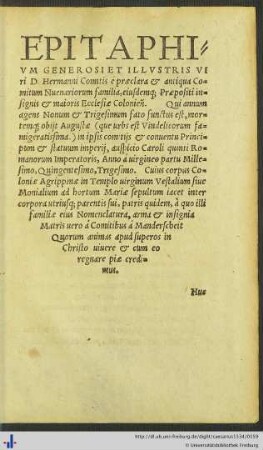 EPITAPHI-
VM GENEROSI ET ILLVSTRIS VI
ri D. Hermanni Comitis e præclera & antiqua Co-
mitum Nuenariorum familia, eiusdemq; Præpositi in-
signis & maioris Ecclesiæ Colonień. Qui annum
agens Nonum & Trigesimum fato functus est, mor-
temq; obijt Augustæ (que urbs est Vindelicorum fa-
migeratissima) in ipsis comitijs & conuentu Princi-
pum & statuum imperij, auspicio Caroli quinti Ro-
manorum Imperatoris, Anno à uirgineo partu Mille-
simo, Quingentesimo, Trigesimo. Cuius corpus Co-
loniæ Agrippinæ in Templo uirginum Vestalium siue
Monialium ad hortum Mariæ sepultum iacet inter
corpora utriusq; parentis sui, patris quidem, à quo illi
familiæ eius Nomenclatura, arma & insignia
Matris uero à Comitibus à Manderscheit
Quorum animas apud superos in
Christo uiuere & cum eo
regnare piæ credi-
mus.
Huc
© Universitätsbibliothek Freiburg